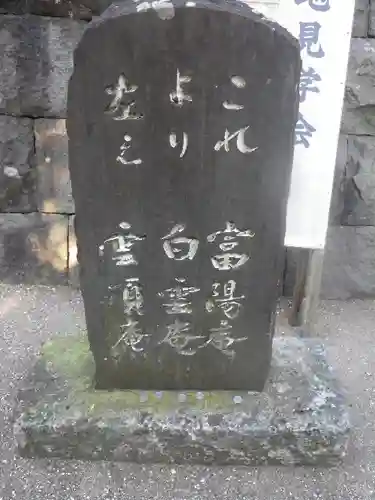 これ 當陽庵
より 白雲庵
左え 雲頂庵
地見学会